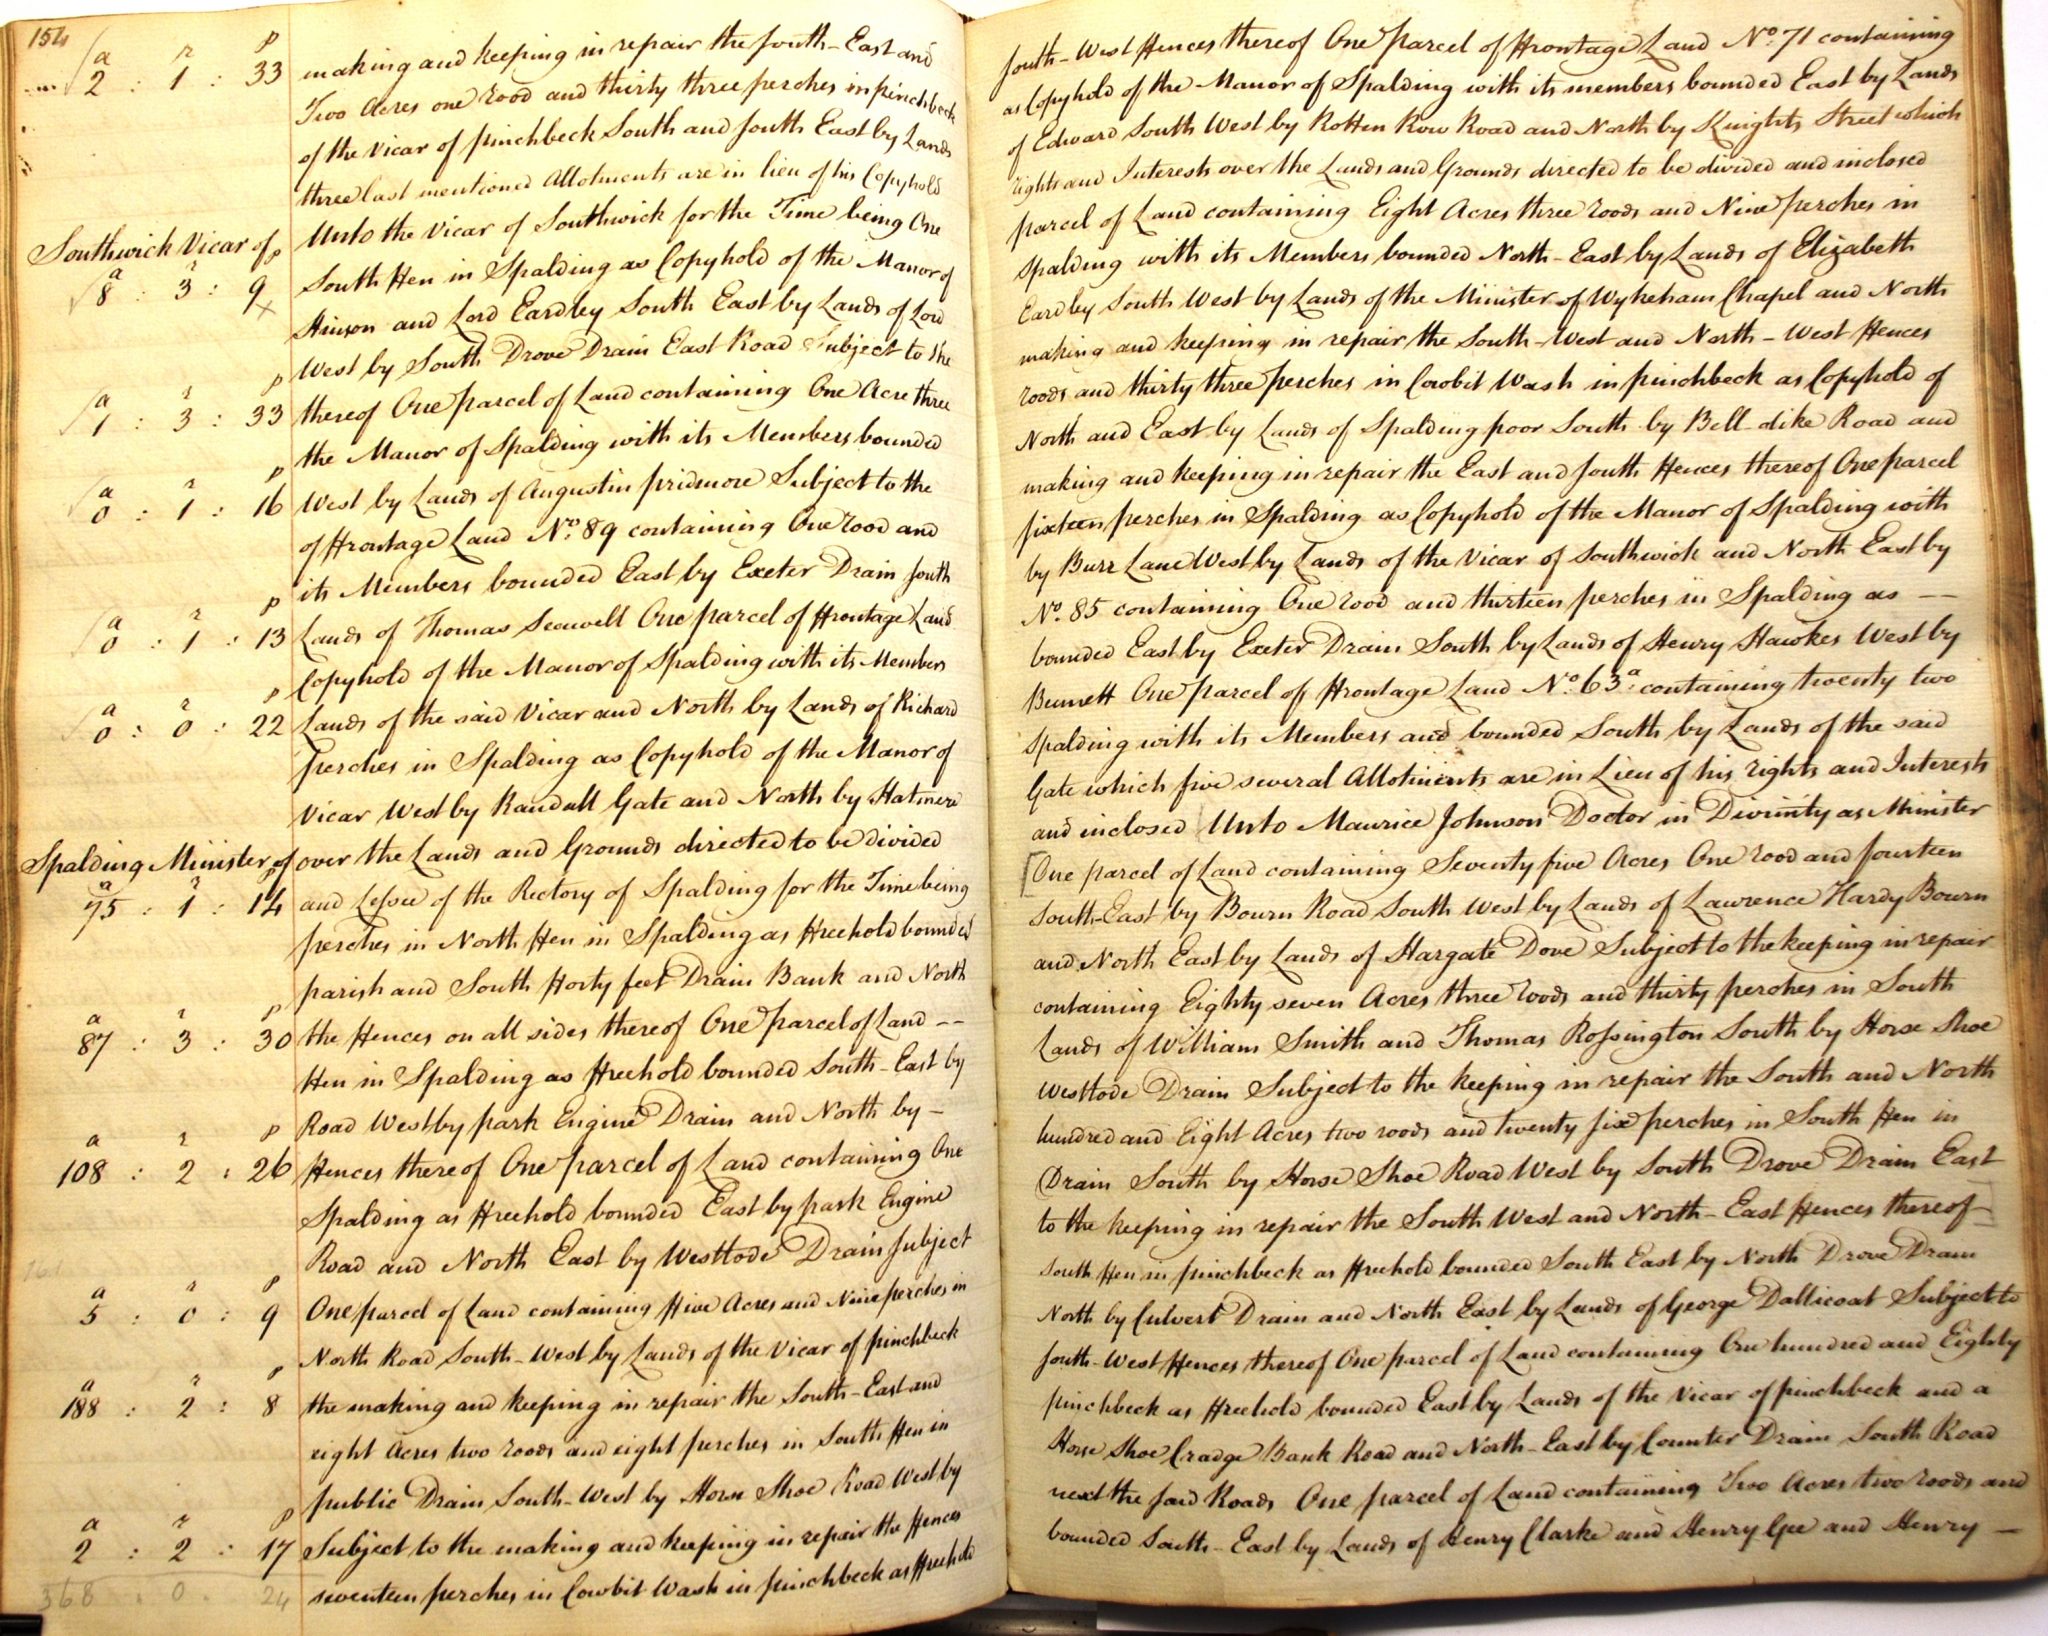 154
a r p
2 : 1 : 33
making and keeping in repair the South-East and South-West Fences thereof One parcel of Frontage Land No. 71 containing
Two Acres one rood and thirty three perches in pinchbeck as Copyhold of the Manor of Spalding with its members bounded East by Lands
of the Vicar of pinchbeck South and South East by Lands of Edward South West by Rotten Row Road and North by Knights Street which
three last mentioned Allotments are in lieu of his Copyhold rights and Interests over the Lands and Grounds directed to be divided and inclosed
Southwick Vicar of
Unto the Vicar of Southwick for the Time being One parcel of Land containing Eight Acres three roods and Nine perches in
a r p
8 : 3 : 9
South Fen in Spalding as Copyhold of the Manor of Spalding with its Members bounded North-East by Lands of Elizabeth
Hinson and Lord Eardley South East by Lands of Lord Eardley South West by Lands of the Minister of Wykeham Chapel and North
West by South Drove Drain East Road Subject to the making and keeping in repair the South-West and North-West Fences
a r p
1 : 3 : 33
thereof One parcel of Land containing One Acre three roods and thirty three perches in Cowbit Wash in pinchbeck as Copyhold of
the Manor of Spalding with its Members bounded North and East by Lands of Spalding poor South by Bell dike Road and
a r p
0 : 1 : 16
West by Lands of Augustin pridmore Subject to the making and keeping in repair the East and South Fences thereof One parcel
of Frontage Land No. 89 containing One rood and sixteen perches in Spalding as Copyhold of the Manor of Spalding with
its Members bounded East by Exeter Drain South by Burr Lane West by Lands of the Vicar of Southwick and North East by
a r p
0 : 1 : 13
Lands of Thomas Seawell One parcel of Frontage Land No. 85 containing One rood and thirteen perches in Spalding as --
Copyhold of the Manor of Spalding with its Members bounded East by Exeter Drain South by Lands of Henry Hawkes West by
a r p
0 : 0 : 22
Lands of the said Vicar and North by Lands of Richard Bennett One parcel of Frontage Land No. 63a. containing twenty two
perches in Spalding as Copyhold of the Manor of Spalding with its Members and bounded South by Lands of the said
Vicar West by Randall Gate and North by Hatmere Gate which five several Allotments are in Lieu of his rights and Interests
Spalding Minister of
over the Lands and Grounds directed to be divided and inclosed Unto Maurice Johnson Doctor in Divinity as Minister
a r p
75 : 1 : 14
and Lessee of the Rectory of Spalding for the Time being [One parcel of Land containing Seventy five Acres One rood and fourteen
perches in North Fen in Spalding as Freehold bounded South-East by Bourn Road South West by Lands of Lawrence Hardy Bourn
parish and South Forty feet Drain Bank and North and North East by Lands of Hargate Dove Subject to the keeping in repair
a r p
87 : 3 : 30
the Fences on all sides thereof One parcel of Land -- containing Eighty seven Acres three roods and thirty perches in South
Fen in Spalding as Freehold bounded South-East by Lands of William Smith and Thomas Rossington South by Horse Shoe
Road West by park Engine Drain and North by - Westlode Drain Subject to the keeping in repair the South and North
a r p
108 : 2 : 26
Fences thereof One parcel of Land containing One hundred and Eight Acres two roods and twenty six perches in South Fen in
Spalding as Freehold bounded East by park Engine Drain South by Horse Shoe Road West by South Drove Drain East
Road and North East by Westlode Drain Subject to the keeping in repair the South West and North-East Fences thereof]
a r p
5 : 0 : 9
One parcel of Land containing Five Acres and Nine perches in South Fen in pinchbeck as Freehold bounded South East by North Drove Drain
North Road South-West by Lands of the Vicar of pinchbeck North by Culvert Drain and North East by Lands of George Dallicoat Subject to
a r p
188 : 2 : 8
the making and keeping in repair the South-East and South-West Fences thereof One parcel of Land containing One hundred and Eighty
eight Acres two roods and eight perches in South Fen in pinchbeck as Freehold bounded East by Lands of the Vicar of pinchbeck and a
public Drain South-West by Horse Shoe Road West by Horse Shoe Cradge Bank Road and North-East by Counter Drain South Road
a r p
2 : 2 : 17
Subject to the making and keeping in repair the Fences next the said Roads One parcel of Land containing Two Acres two roods and
368 . 0 . 24
seventeen perches in Cowbit Wash in pinchbeck as Freehold bounded South-East by Lands of Henry Clarke and Henry Gee and Henry -